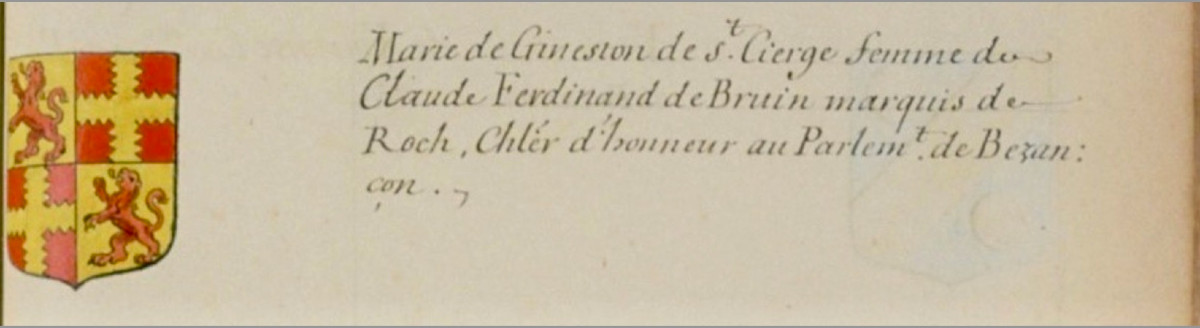 Marie de Gineston de S.t Cierge femme de
Claude Ferdinand de Bruin marquis de
Roch, Chlér d'honneur au Parlem.t de Bezan:
çon.